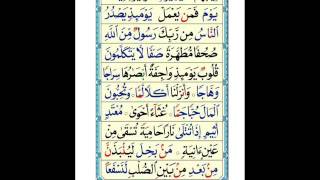 يَوْمَ فَمَنْ يَعْمَلْ يَوْمَئِذٍ يَصْدُرُ
النَّاسُ مِنْ رَبِّكَ رَسُولٌ مِنَ اللَّهِ
صُحُفًا مُطَهَّرَةً صَفًّا لَا يَتَكَلَّمُونَ
قُلُوبٌ يَوْمَئِذٍ وَاجِفَةٌ أَبْصَارُهَا سِرَاجًا
وَهَّاجًا وَأَنْزَلْنَا أَكْلًا لَمًّا وَتُحِبُّونَ
الْمَالَ حُبًّا جَمًّا غُثَاءً أَحْوَى مُعْتَدٍ
أَثِيمٍ إِذَا تُتْلَى نَارًا حَامِيَةً تُسْقَى مِنْ
عَيْنٍ آنِيَةٍ مَنْ بَخِلَ لَيُنْبَذَنَّ
مِنْ بَعْدِ مِنْ بَيْنِ الصُّلْبِ لَنَسْفَعًا